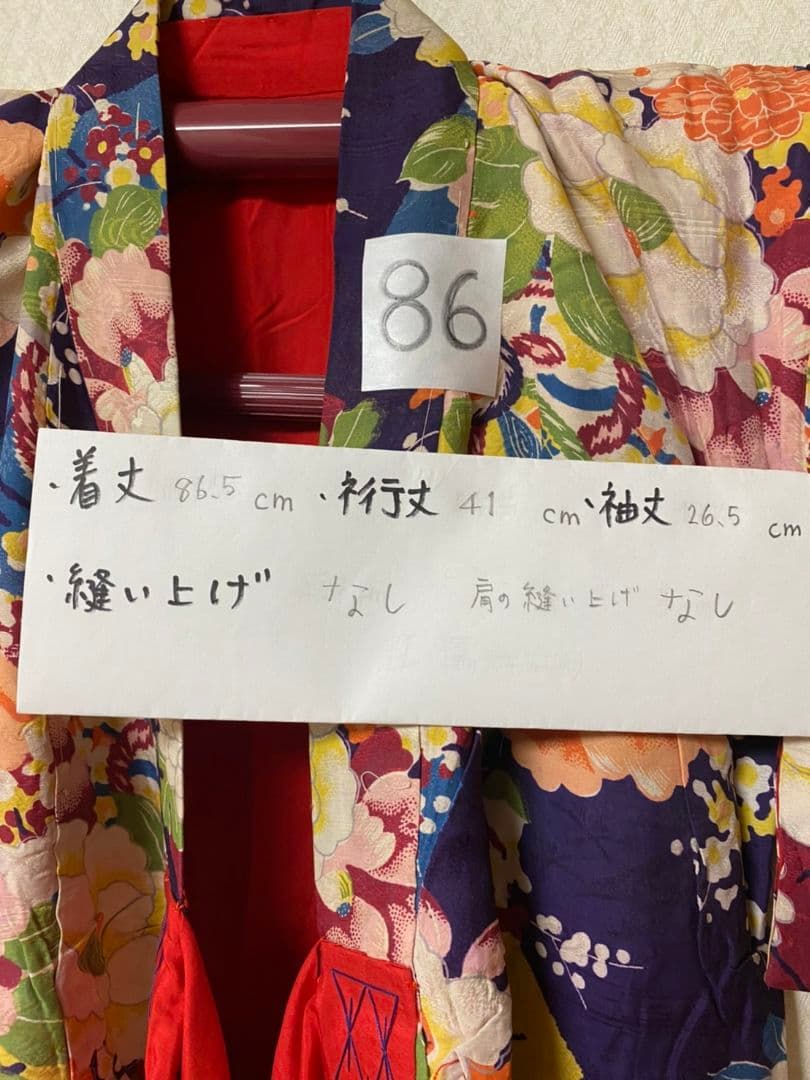 86
・着丈 86.5 cm ・裄丈 41 cm ・袖丈 26.5 cm
・縫い上げ なし 肩の縫い上げ なし